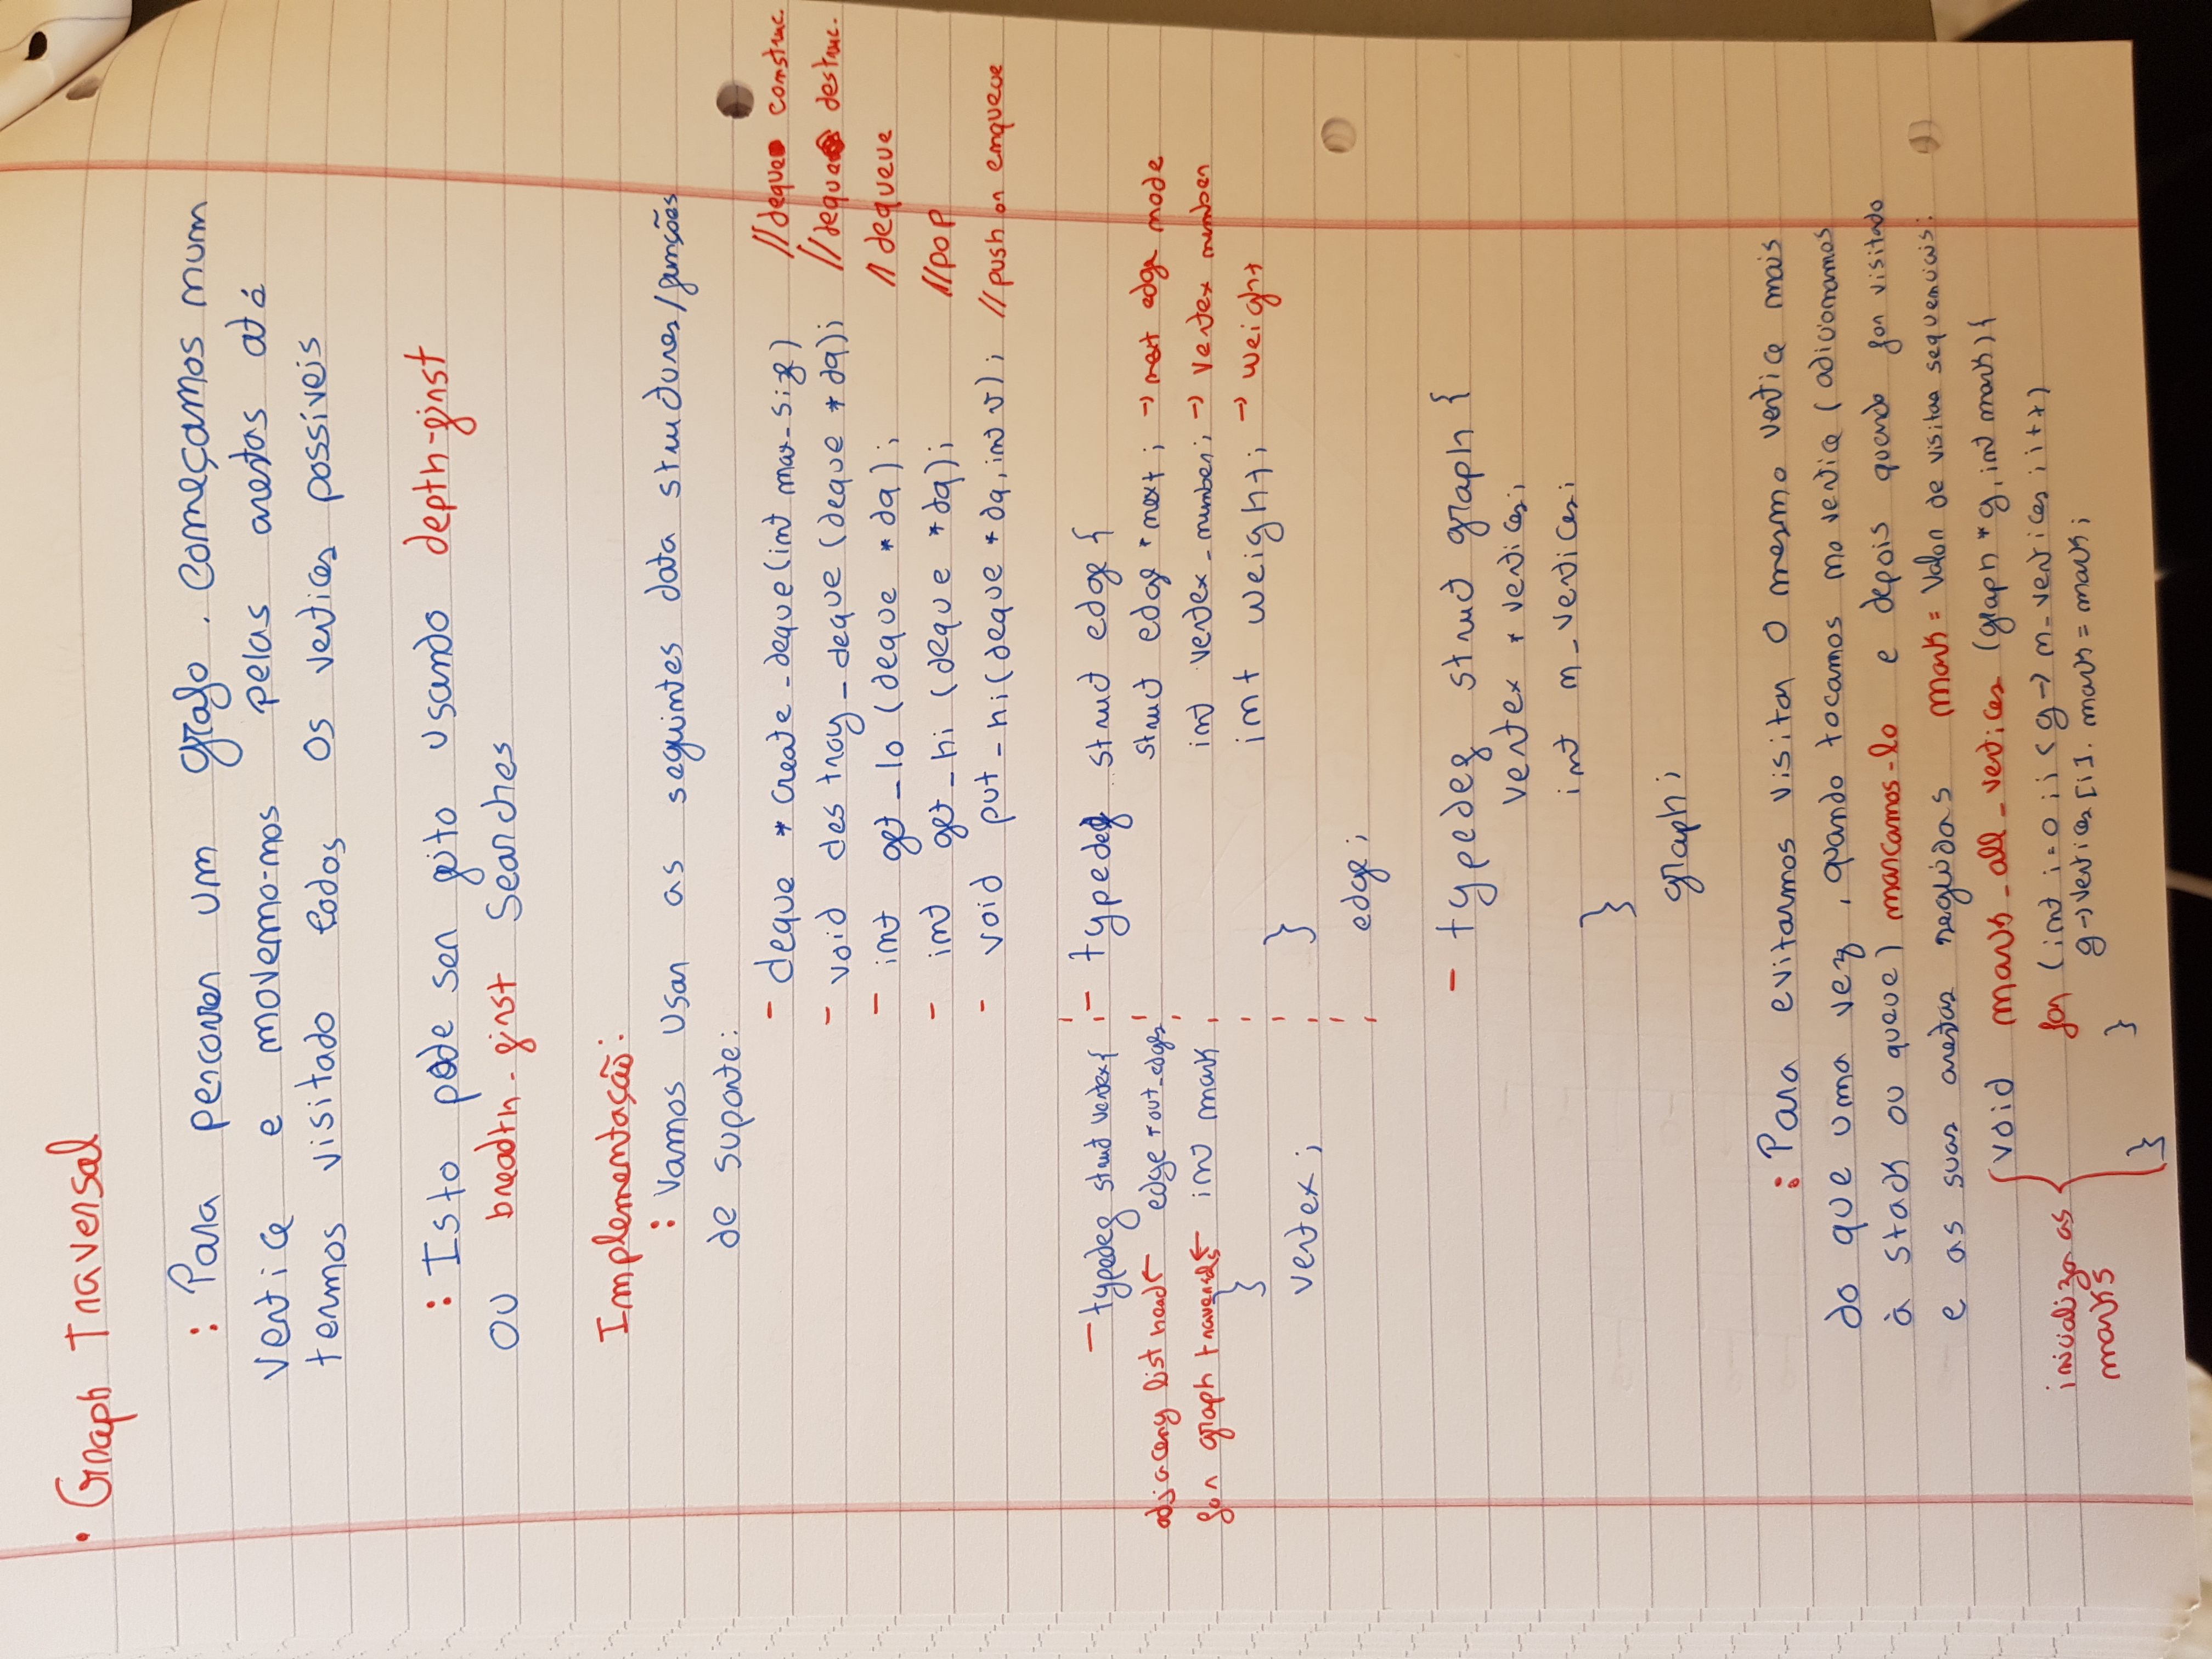 • Graph Traversal
: Para percorrer um grafo. Começamos num
vertice e movemo-nos pelas arestas até
termos visitado todos os vertices possíveis
: Isto pode ser feito usando depth-first
ou breadth-first Searches
Implementação:
: Vamos usar as seguintes data structures/funções
de suporte:
- deque * create_deque(int max_size) //deque construc.
- void destroy_deque (deque * dq); //deque destruc.
- int get_lo (deque * dq); // dequeue
- int get_hi (deque * dq); //pop
- void put_hi(deque * dq, int v); //push or enqueue
- typedef struct vertex{
adjaceny list head ← edge * out_edges
for graph traversals ← int mark
}
vertex;
- typedef struct edge {
struct edge * next; → next edge node
int vertex_number; → vertex number
int weight; → weight
}
edge;
- typedef struct graph {
vertex * vertices;
int n_vertices;
}
graph;
: Para evitarmos visitar o mesmo vertice mais
do que uma vez, quando tocamos no vertice (adicionamos
à stack ou queue) marcamos-lo e depois quando for visitado
e as suas arestas seguidas mark = Valor de visitas sequenciais:
void mark_all_vertices (graph * g, int mark){
for (int i=0; i < g→ n_vertices; i++)
inicializa as
marks
g→vertices [i]. mark = mark;
}
}